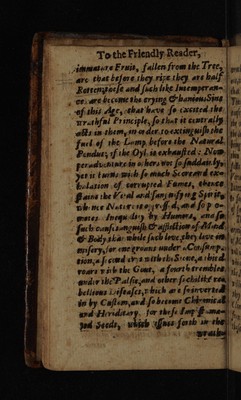 To the Friendly Reader,
immature Fruit, fallen from the Tree,
are that before they ripe they are half
Rotten; those and such like Intemperan-
ce are become the crying & hanious Sins
of this Age, that have so excited the
wrathful Principle, so that it centrally
acts in them, in order to extinguish the
fuel of the Lamp before the Natural
Period; if the Oyl is exhausted: Now
peradventure in others not so suddainly,
yet it burns with so much
halation of corrupted Fumes, thence
staine the Vital and Spirit,
whence Nature is and so pro-
motes Inequality by Humors, and so
such cause anguish & affliction of Mind
& Body that while such love, they live in
misery, for one groans under a Consump-
tion, a second with the Stone, a third
roars with the Gout, a fourth trembles
under the Palsie, and other such like re-
bellious Diseases, which are so inverted
in by Custom, and so become Chronical
and Hereditary. for these
Seeds, which issues forth in the